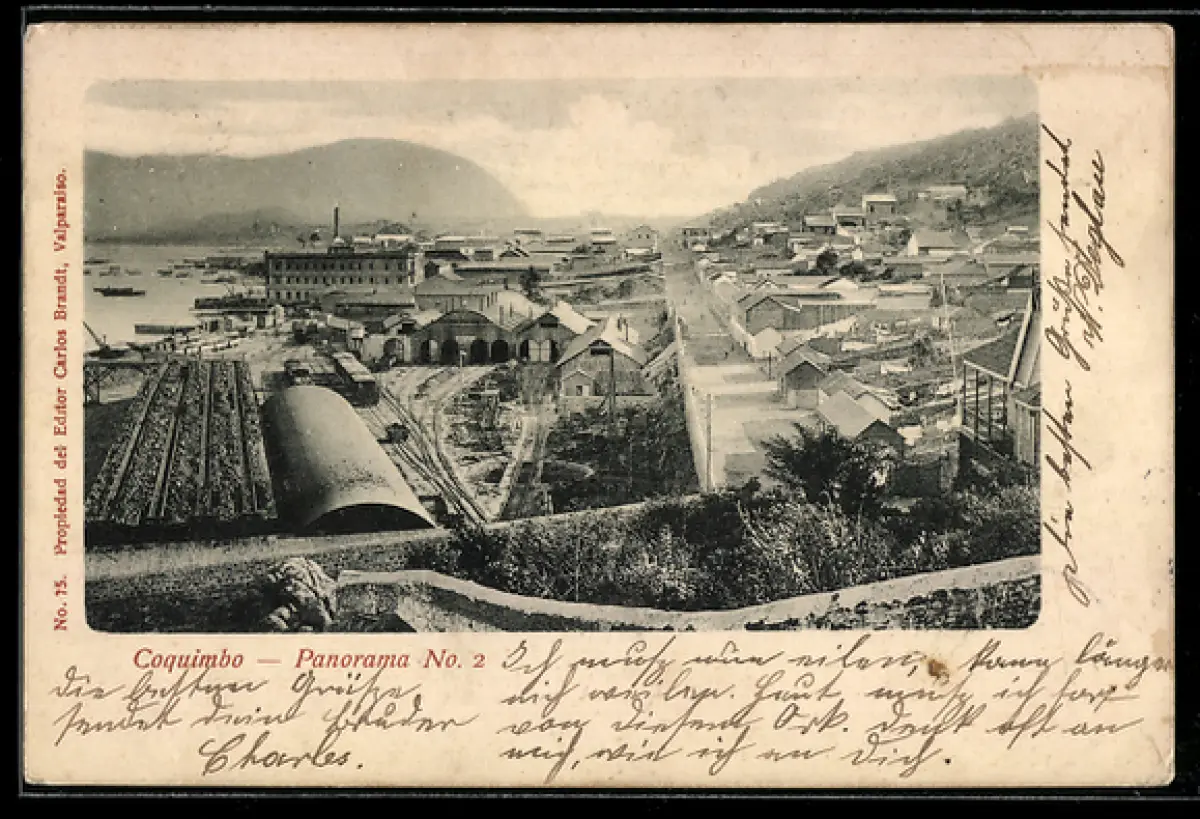 No. 75. Propiedad del Editor Carlos Brandt, Valparaiso.
Coquimbo — Panorama No. 2
Die besten Grüße
sendet dein Bruder
Charles.
Ich muß nun eilen, kann länger
nicht weilen. Heut muß ich fort
von diesem Ort. Denk oft an
mich, wie ich an Dich.
besten Grüße sendet